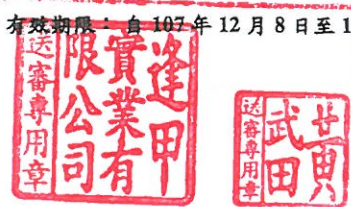 有效期限：自 107 年 12 月 8 日至 1
逢甲
實業有
限公司
送審專用章
黃
武田
送審專用章